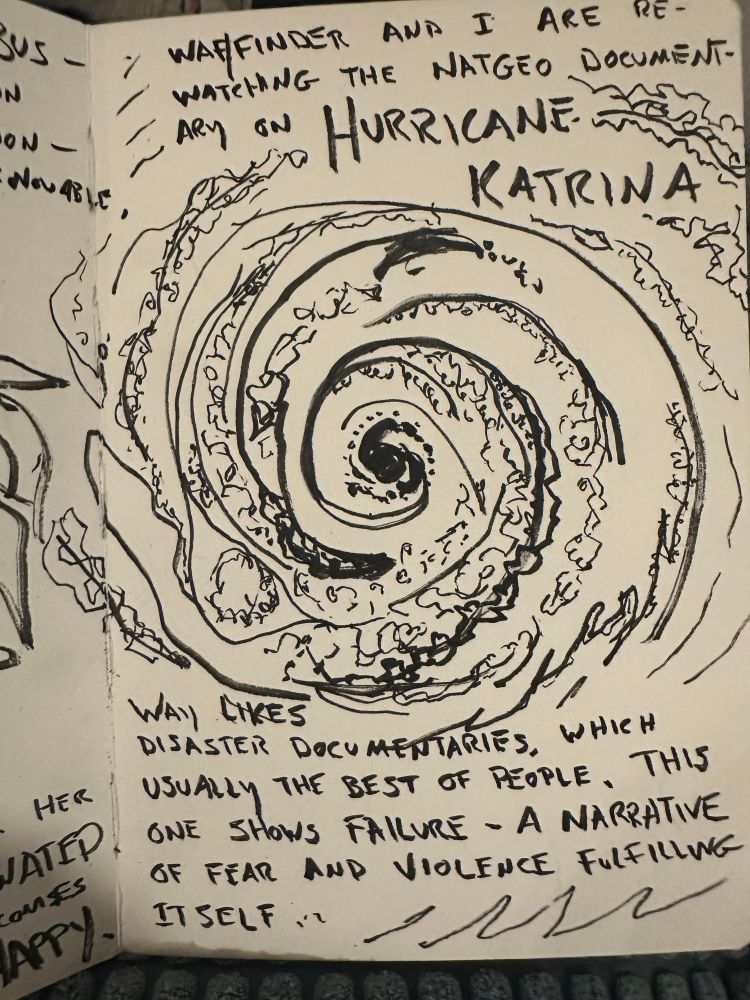 WAYFINDER AND I ARE RE-
WATCHING THE NATGEO DOCUMENT-
ARY ON HURRICANE
KATRINA
WAY LIKES
DISASTER DOCUMENTARIES, WHICH
USUALLY THE BEST OF PEOPLE. THIS
ONE SHOWS FAILURE - A NARRATIVE
OF FEAR AND VIOLENCE FULFILLING
ITSELF...
HER
HAPPY.